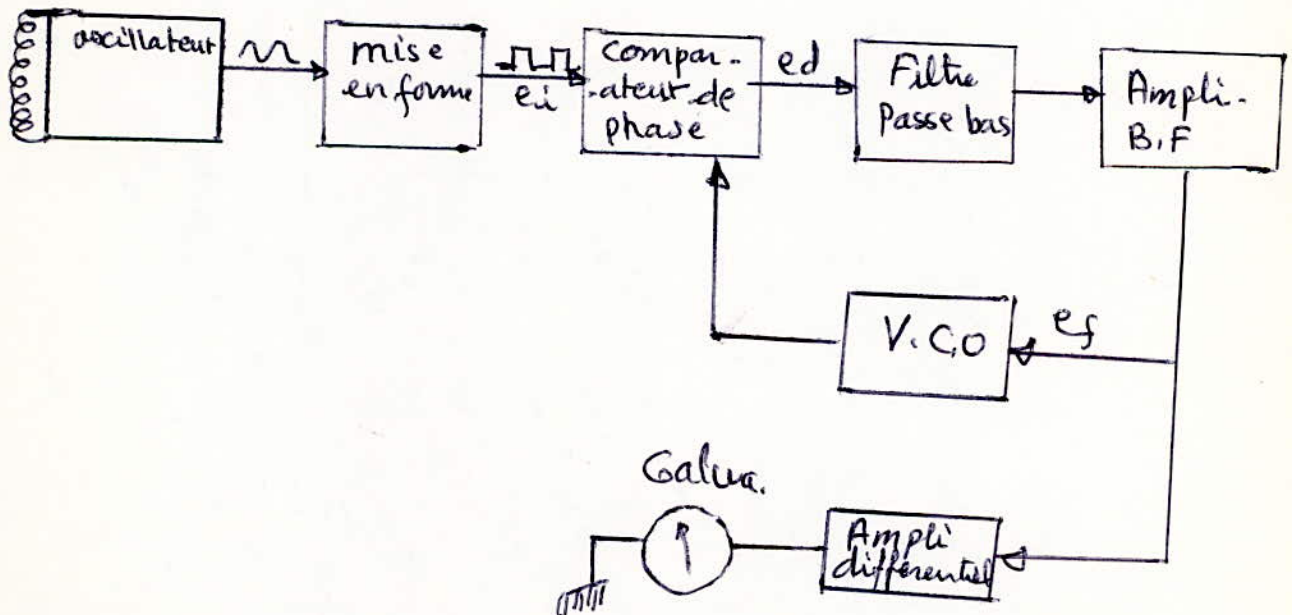 oscillateur
mise
en forme
ei
Compar-
-ateur de
phase
ed
Filtre
Passe bas
Ampli-
B.F
V.C.O
ef
Galva.
Ampli
différentiel